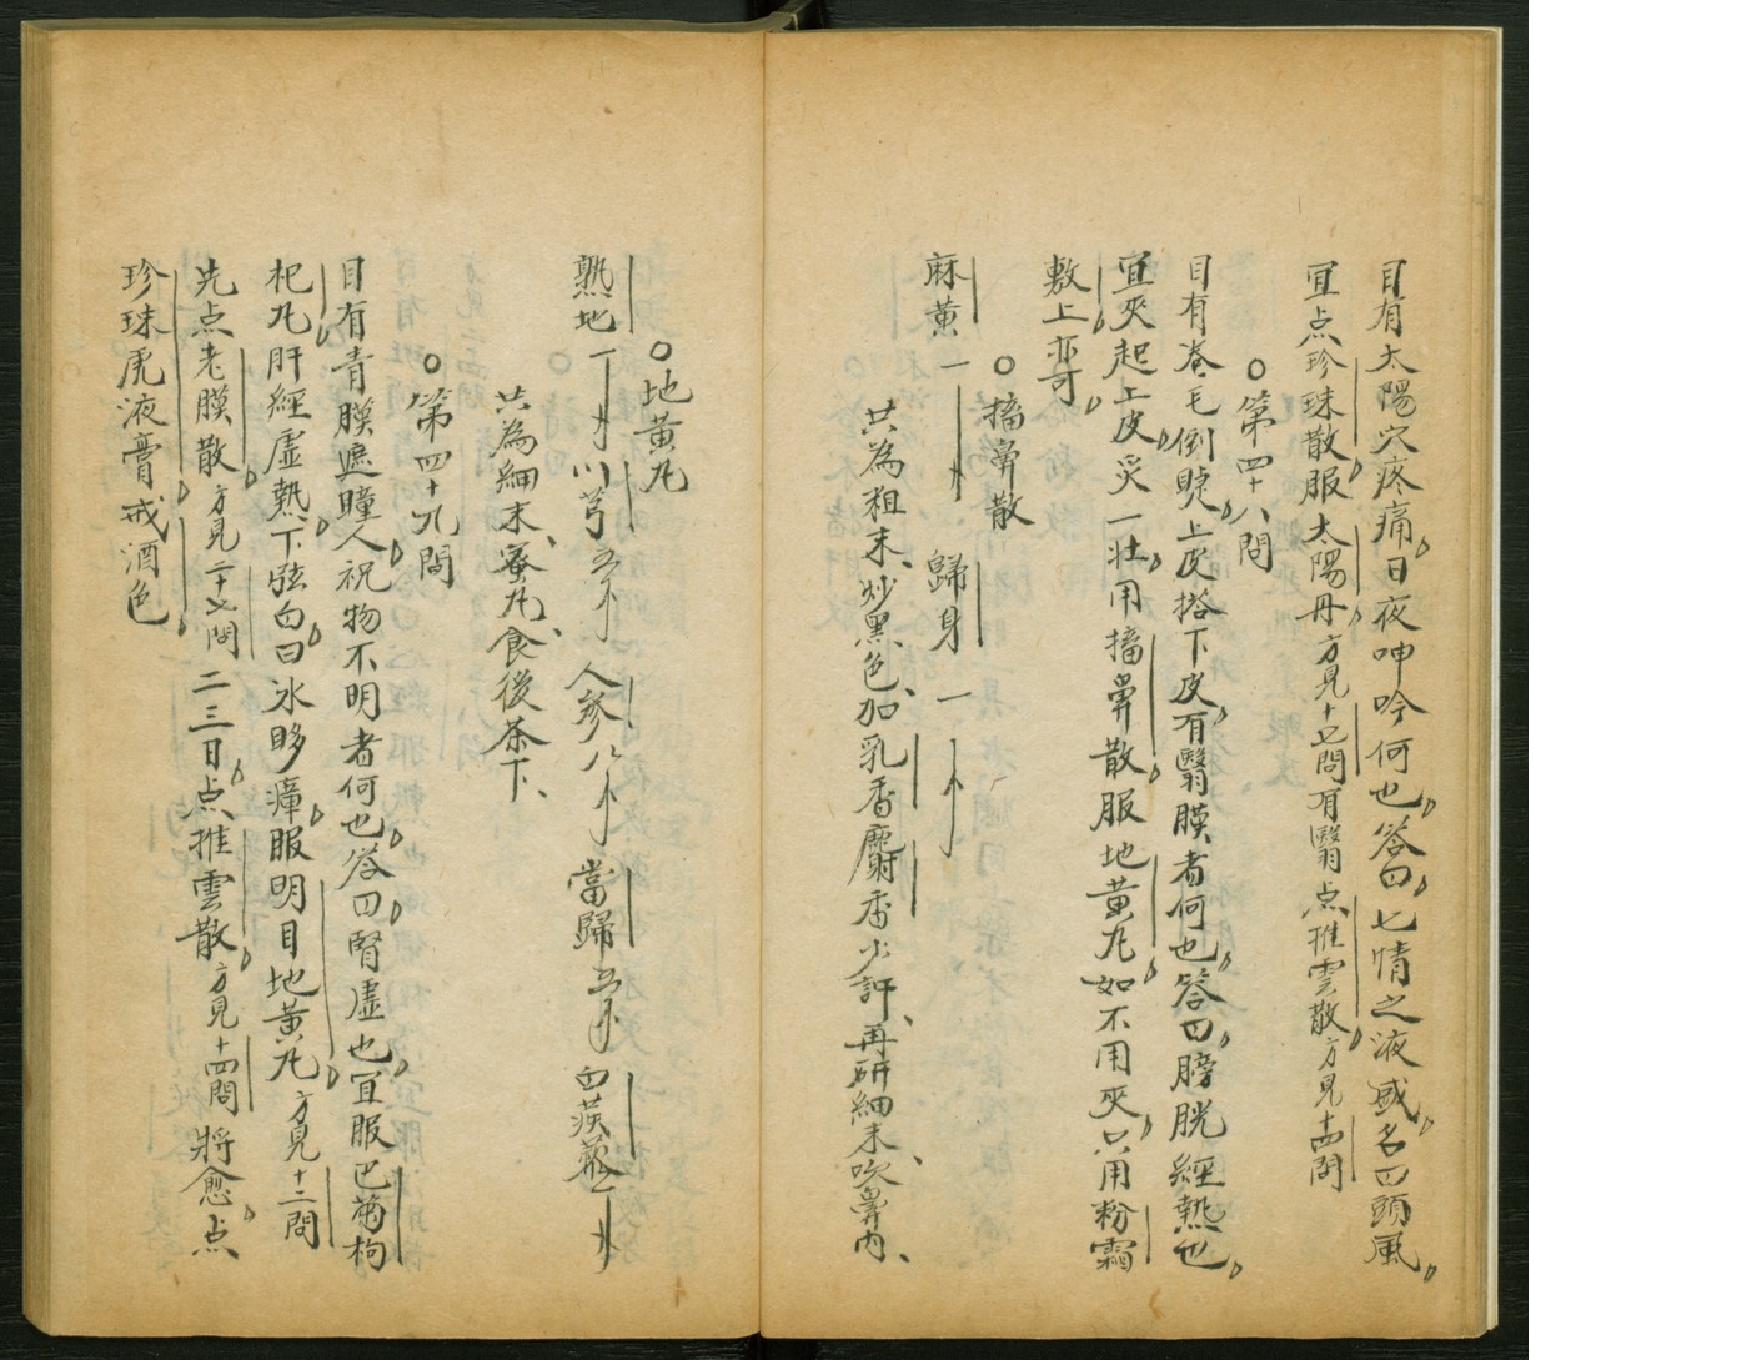 目有太陽穴疼痛日夜呻吟何也答曰七情之液感名曰頭風
宜点珍珠散服太陽丹方見十七問有翳点推雲散方見十四問
○第四十八問
目有卷毛倒睫上皮搭下皮有翳膜者何也答曰膀胱經熱也
宜夾起上皮灸一壯用搐鼻散服地黃丸如不用夾只用粉霜
敷上亦可
○搐鼻散
麻黃一 歸身一
共為粗末炒黑色加乳香麝香少許再研細末吹鼻內
○地黃丸
熟地 川芎 人參 當歸 白蒺藜
共為細末蜜丸食後茶下
○第四十九問
目有青膜遮瞳人視物不明者何也答曰腎虛也宜服巴菊枸
杞丸肝經虛熱下弦白曰冰眵瘴服明目地黃丸方見十二問
先点老膜散方見二十七問二三日点推雲散方見十四問將愈点
珍珠虎液膏戒酒色